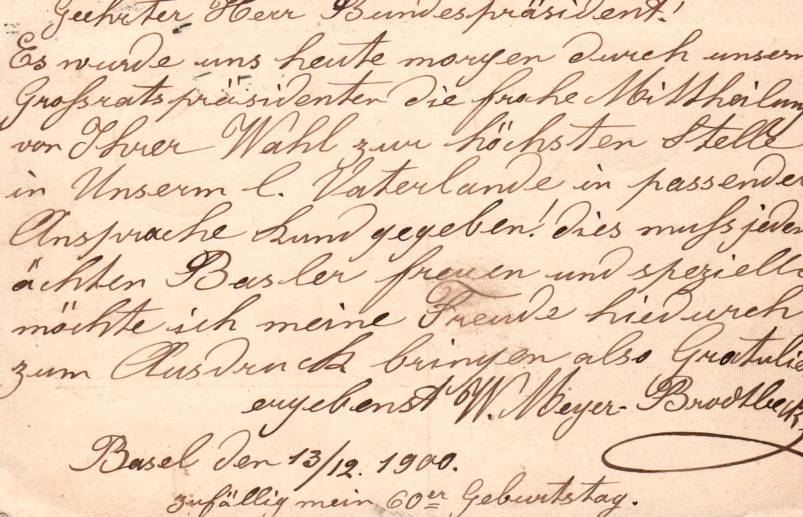 Geehrter Herr Bundespräsident!
Es wurde uns heute morgen durch unsern
Grossratspräsidenten die frohe Mittheilung
von Ihrer Wahl zur höchsten Stelle
in Unserm l. Vaterlande in passender
Ansprache kund gegeben! dies muss jeden
ächten Basler freuen und speziell
möchte ich meine Freude hiedurch
zum Ausdruck bringen also Gratulie
ergebenst W. Meyer-Brodtbeck
Basel den 13/12. 1900.
zufällig mein 60er Geburtstag.